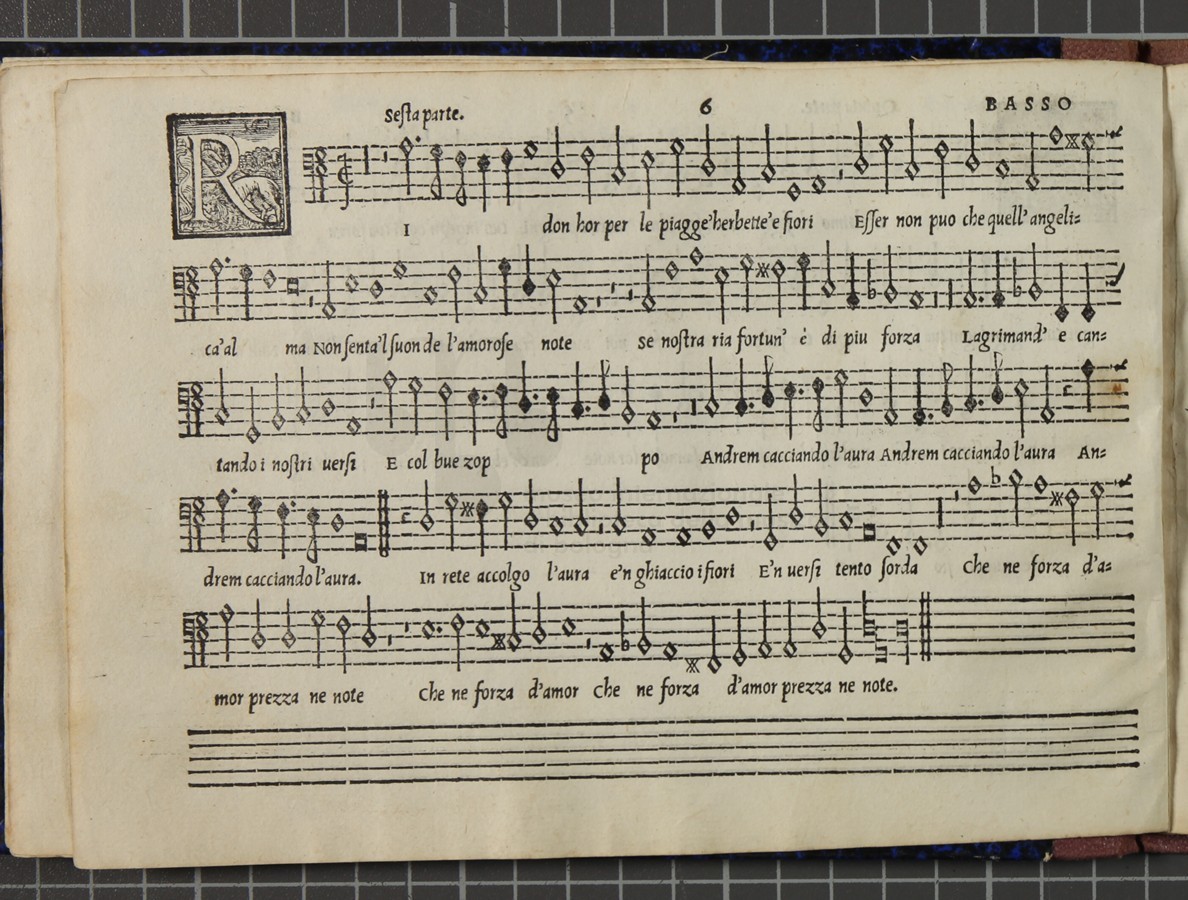 Sesta parte. 6 BASSO
R I don hor per le piagge'herbette'e fiori Esser non puo che quell'angeli=
ca'al ma Non senta'l suon de l'amorose note se nostra ria fortun' è di piu forza Lagrimand' e can=
tando i nostri uersi E col bue zop po Andrem cacciando l'aura Andrem cacciando l'aura An=
drem cacciando l'aura. In rete accolgo l'aura e'n ghiaccio i fiori E'n uersi tento sorda Che ne forza d'a=
mor prezza ne note Che ne forza d'amor Che ne forza d'amor prezza ne note.